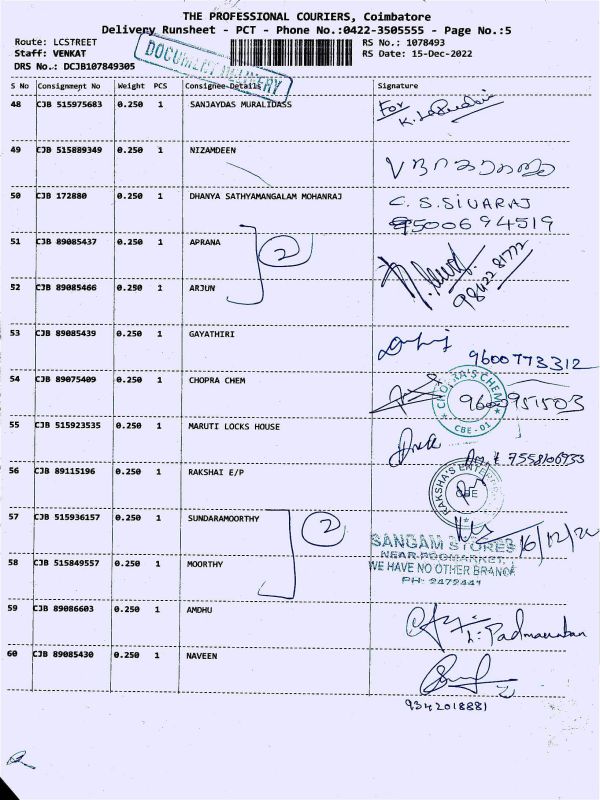 THE PROFESSIONAL COURIERS, Coimbatore
Delivery Runsheet - PCT - Phone No.:0422-3505555 - Page No.:5
Route: LCSTREET
RS No.: 1078493
Staff: VENKAT
RS Date: 15-Dec-2022
DRS No.: DCJB107849305
DOCUMENT DELIVERY
S No Consignment No Weight PCS Consignee Details Signature
48 CJB 515975683 0.250 1 SANJAYDAS MURALIDASS For
49 CJB 515889349 0.250 1 NIZAMDEEN
50 CJB 172880 0.250 1 DHANYA SATHYAMANGALAM MOHANRAJ C. S. SIVARAJ
9500694519
51 CJB 89085437 0.250 1 APRANA 2
52 CJB 89085466 0.250 1 ARJUN 98422 81772
53 CJB 89085439 0.250 1 GAYATHIRI
9600773312
54 CJB 89075409 0.250 1 CHOPRA CHEM 9600951503
CHOPRA'S CHEM CBE - 01
55 CJB 515923535 0.250 1 MARUTI LOCKS HOUSE
7558106933
56 CJB 89115196 0.250 1 RAKSHAI E/P
RAKSHA'S ENTERPRISES CBE
57 CJB 515936157 0.250 1 SUNDARAMOORTHY 2
SANGAM STORES 16/12/22
NEAR POOMARKET,
58 CJB 515849557 0.250 1 MOORTHY WE HAVE NO OTHER BRANCH
PH: 2472441
59 CJB 89086603 0.250 1 AMDHU
L. Padmanaban
60 CJB 89085430 0.250 1 NAVEEN
9342018881